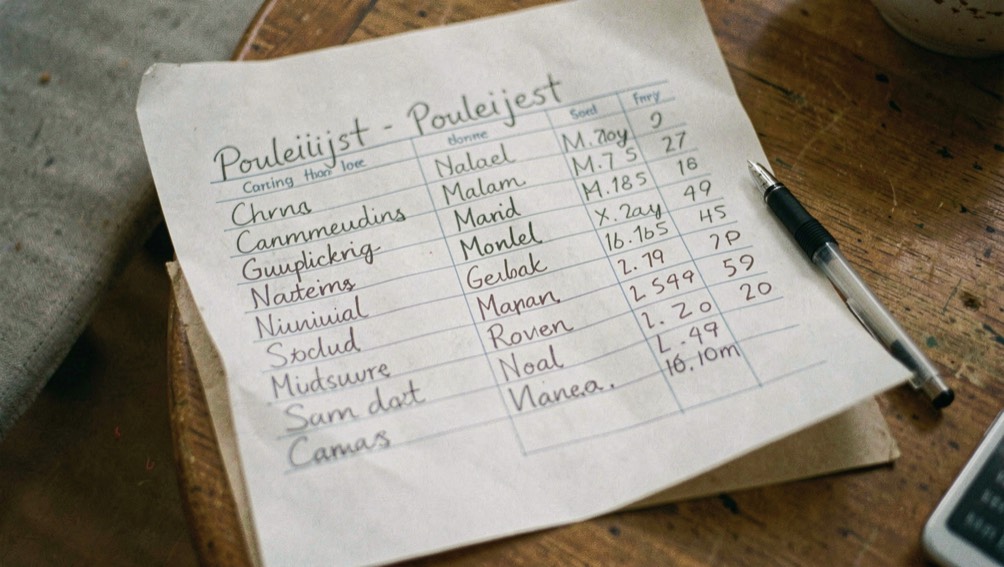 Pouleiiijst - Pouleijest
Carting than love donne Soed Fnry
Chrna Nalael M. 7oy 9
Canmmeudins Malam M.7 5 27
Guuplickrig Marid M.185 18
Narteims Monlel X. 2ay 49
Niuniuial Gerbak 16.165 45
Soclud Maran 2.79 7P
Miudsuure Roven 2 549 59
Sam dart Noal 1. 20 20
Camas Nanea. 2.49
16.10m